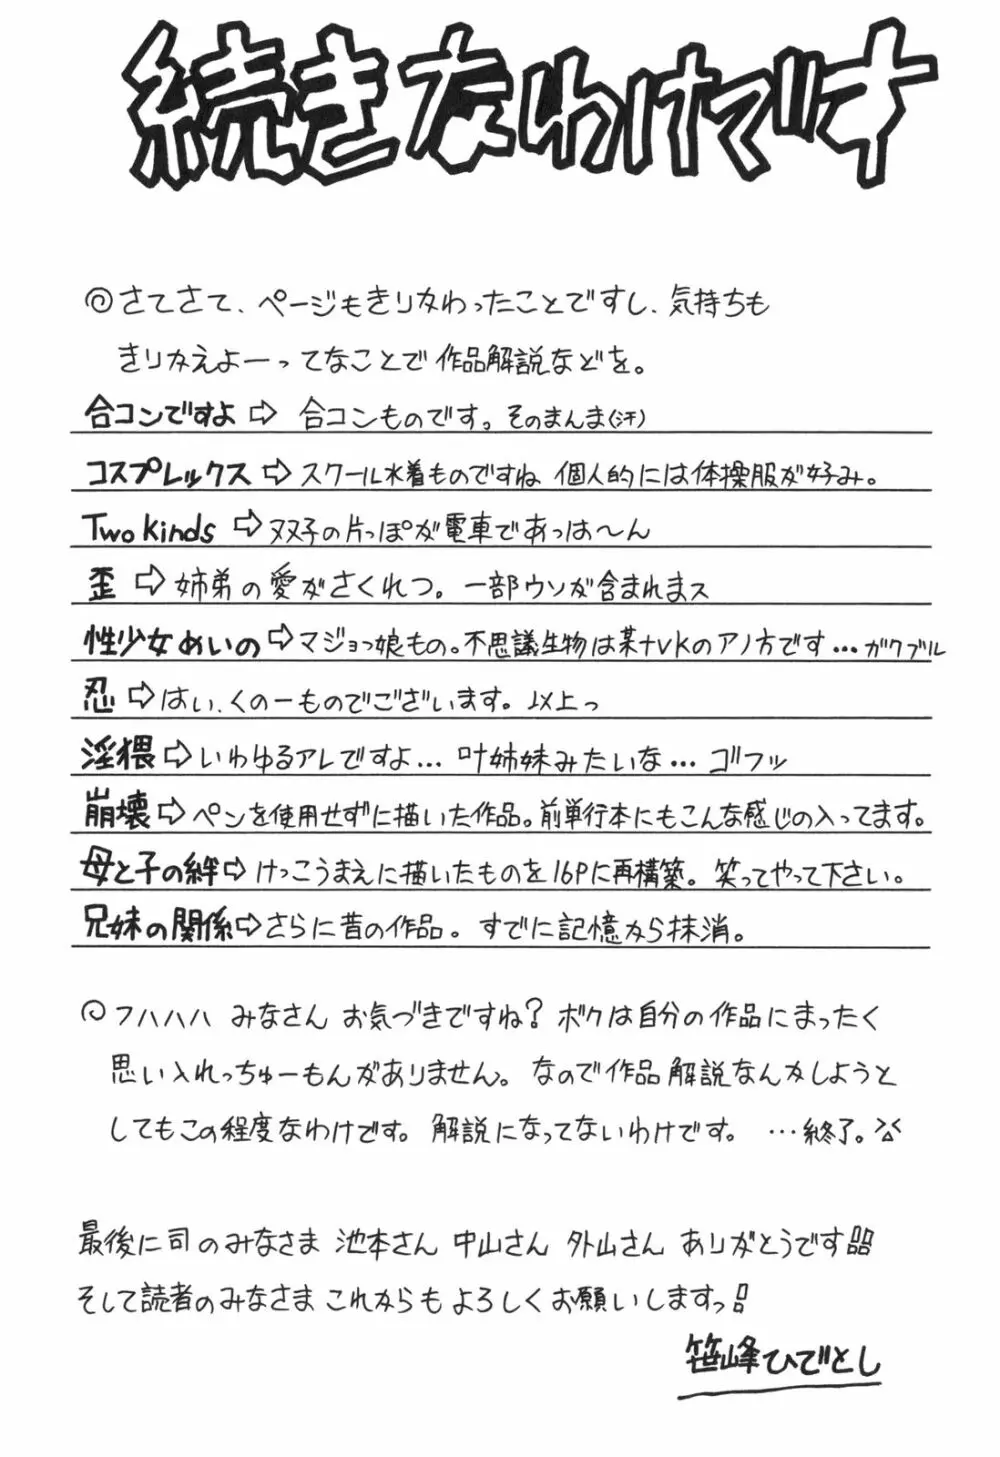 続きなわけです
◎さてさて、ページもきりかわったことですし、気持ちも
きりかえよーってなことで作品解説などを。
合コンですよ⇨ 合コンものです。そのまんま(汗)
コスプレックス⇨スクール水着ものですね 個人的には体操服が好み。
Two Kinds ⇨双子の片っぽが電車であっは〜ん
歪⇨姉弟の愛がさくれつ。一部ウソが含まれまス
性少女めいの⇨マジョっ娘もの。不思議生物は某ナVKのアノ方です…ガクブル
忍⇨はい、くの一ものでございます。以上っ
淫猥⇨いわゆるアレですよ… 叶姉妹みたいな… ゴフッ
崩壊⇨ペンを使用せずに描いた作品。前単行本にもこんな感じの入ってます。
母と子の絆⇨けっこうまえに描いたものを16Pに再構築。笑ってやって下さい。
兄妹の関係⇨さらに昔の作品。すでに記憶から抹消。
◎フハハハ みなさん お気づきですね? ボクは自分の作品にまったく
思い入れっちゅーもんがありません。なので作品解説なんかしようと
してもこの程度なわけです。解説になってないわけです。 …終了。
最後に司のみなさま 池本さん 中山さん 外山さん ありがとうです!!
そして読者のみなさま これからもよろしくお願いしますっ!
笹峰ひでとし